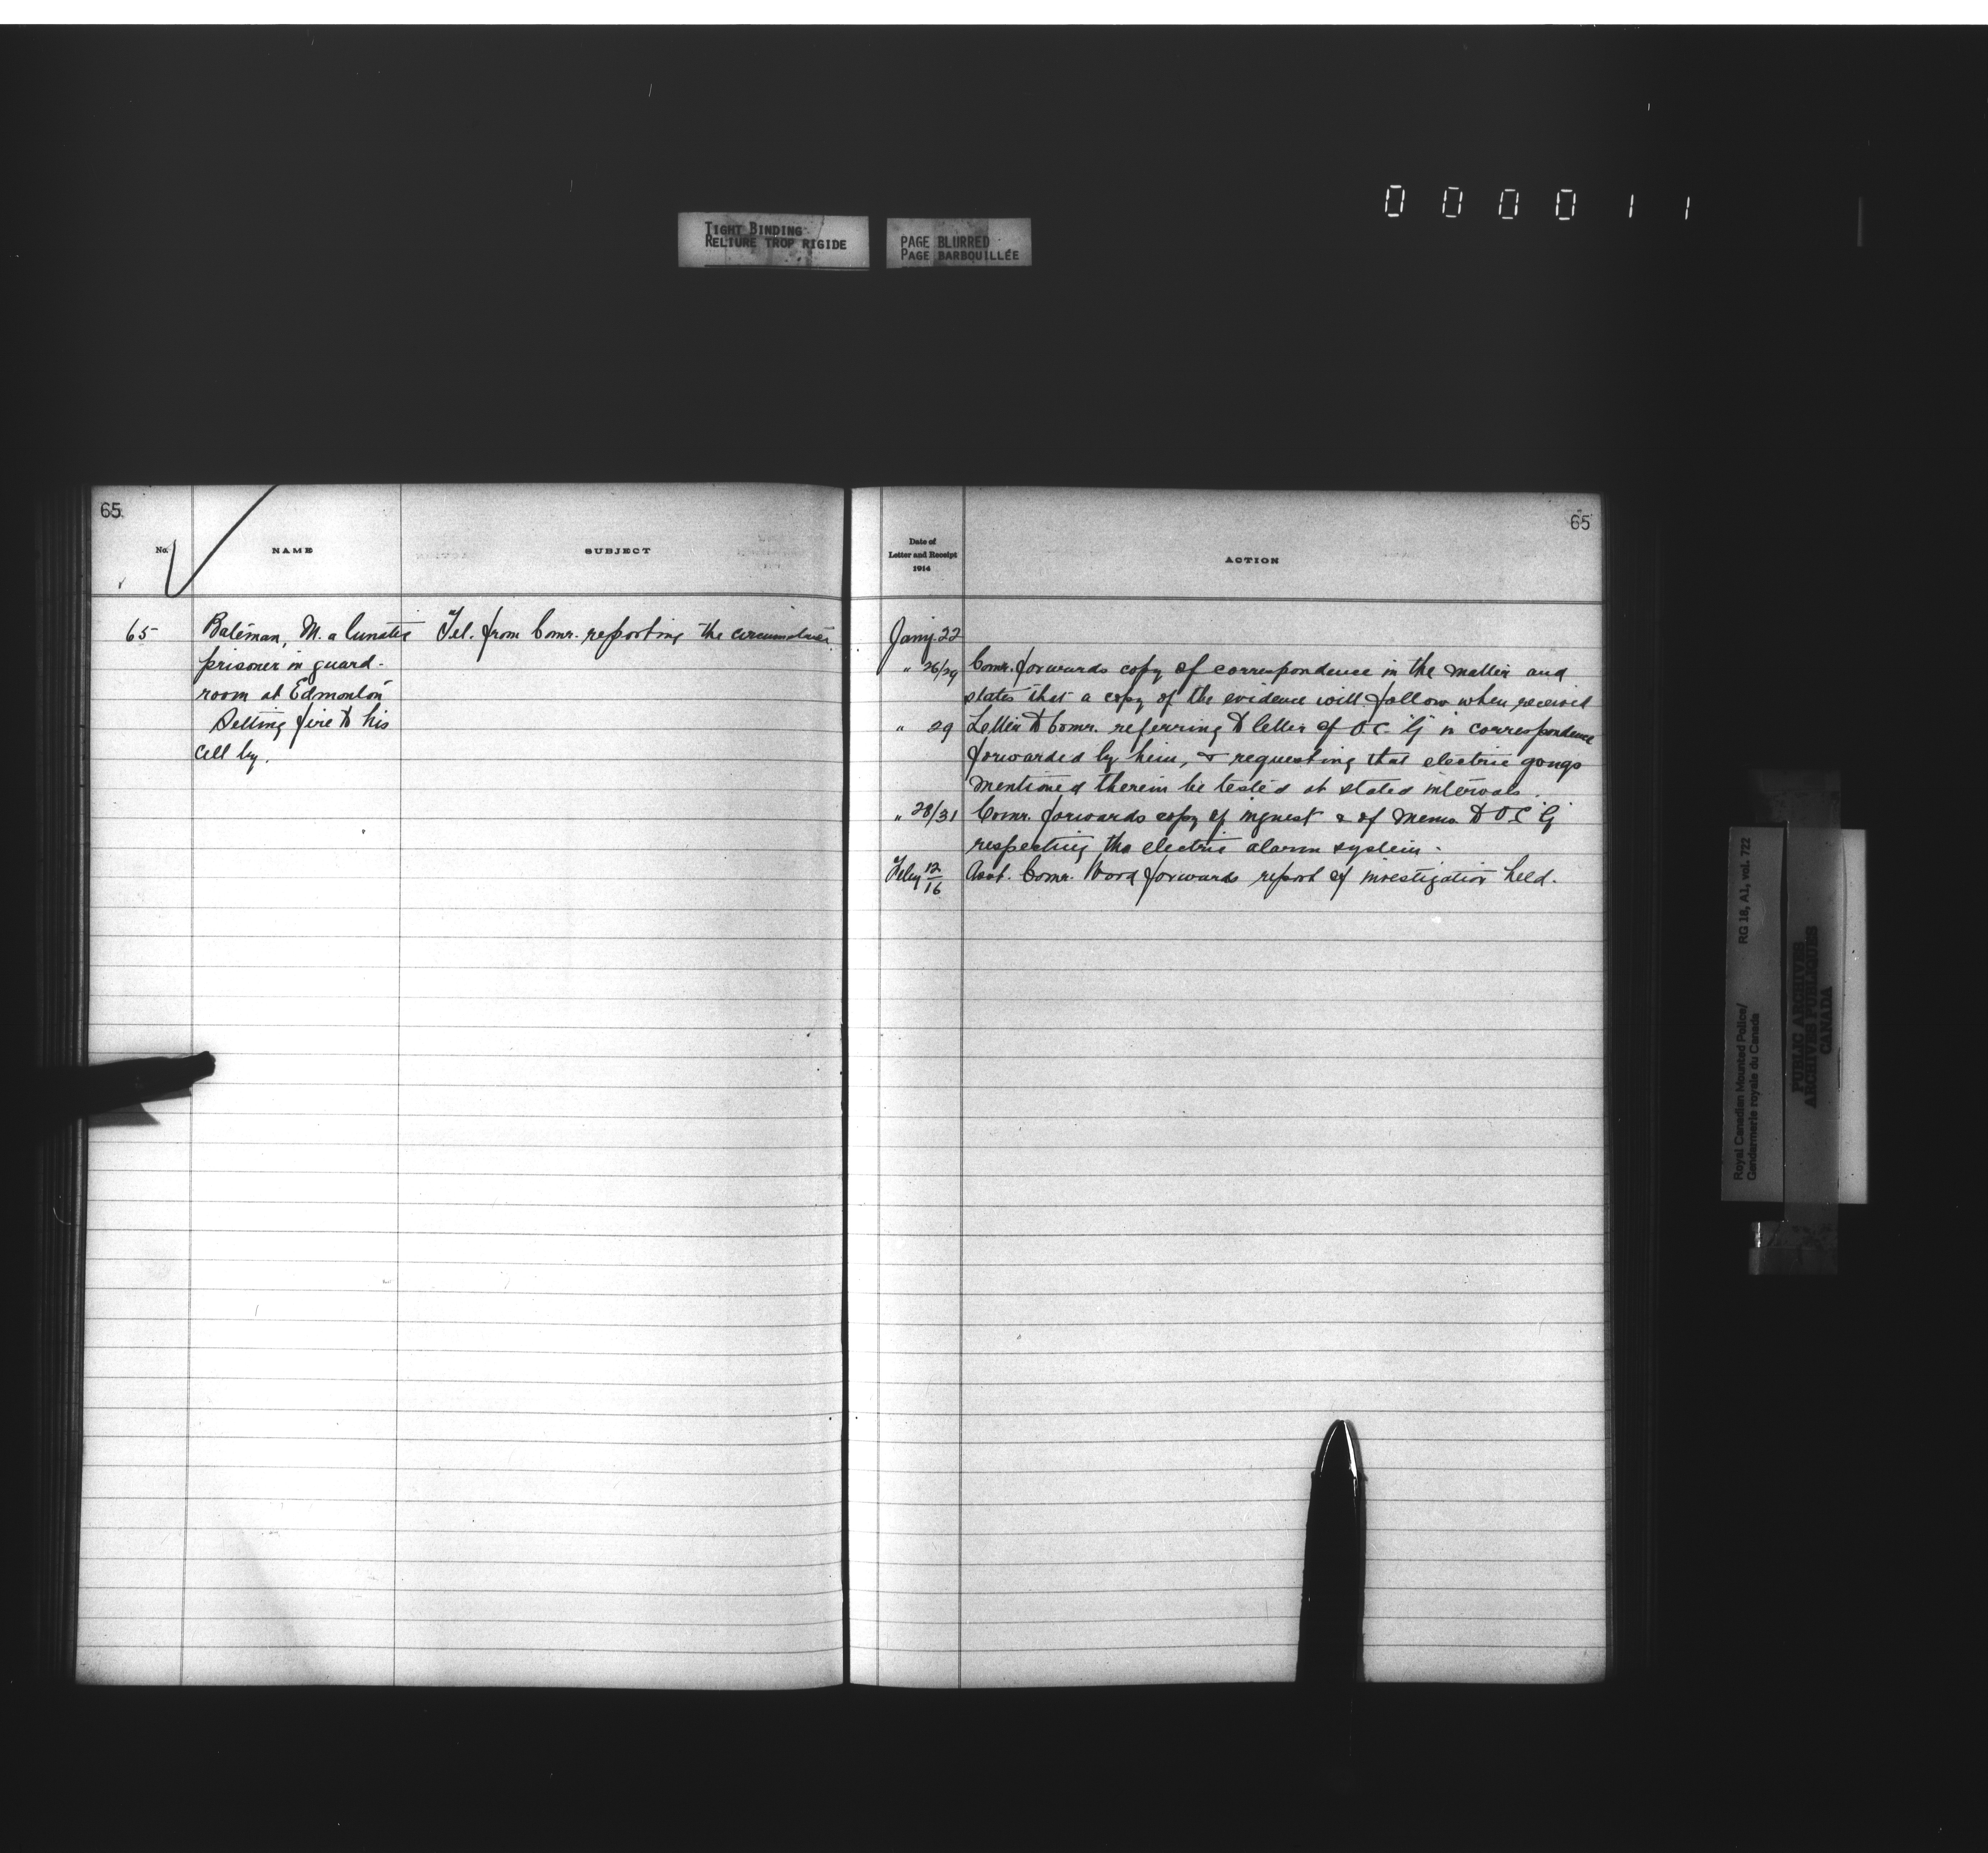 000011
TIGHT BINDING
RELIURE TROP RIGIDE
PAGE BLURRED
PAGE BARBOUILLÉE
65
No.
NAME
SUBJECT
65
Bateman, M. a lunatic
prisoner in guard-
room at Edmonton
Setting fire to his
cell by.
Tel. from Comr. reporting the circumstances
65
Date of
Letter and Receipt
1914
ACTION
Jany. 22
" 26/29 Comr. forwards copy of correspondence in the matter and
states that a copy of the evidence will follow when received
" 29 Letter to Comr. referring to letter of O.C. "G" in correspondence
forwarded by him, & requesting that electric gongs
mentioned therein be tested at stated intervals.
" 28/31 Comr. forwards copy of inquest & of memo to O.C "G"
respecting the electric alarm system.
Feby 12/16 Asst. Comr. Wood forwards report of investigation held.
Royal Canadian Mounted Police/
Gendarmerie royale du Canada
RG 18, A1, vol. 722
PUBLIC ARCHIVES
ARCHIVES PUBLIQUES
CANADA